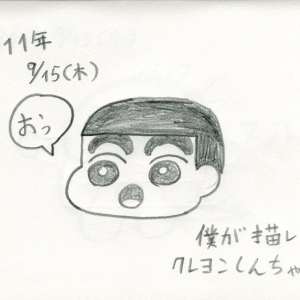 11年
9/15(木)
おっ
僕が描い
クレヨンしんちゃ